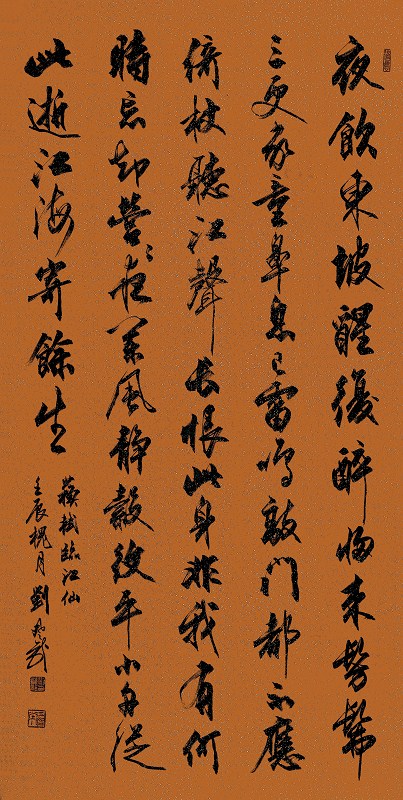 夜飲東坡醒復醉歸來髣髴
三更家童鼻息已雷鳴敲門都不應
倚杖聽江聲長恨此身非我有何
時忘却營〻夜闌風靜縠紋平小舟從
此逝江海寄餘生
蘇軾臨江仙
壬辰槐月劉